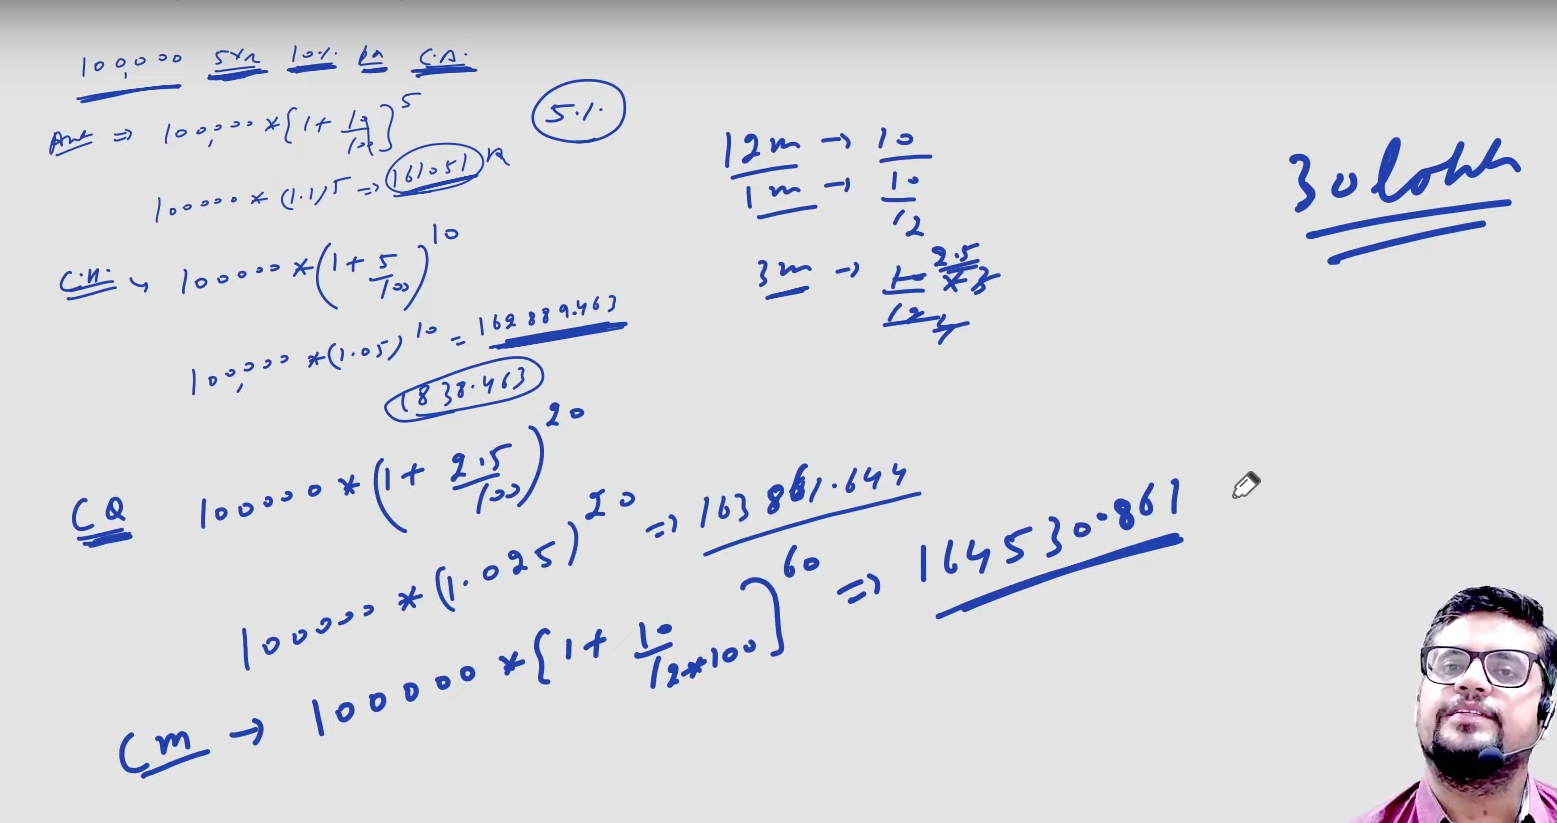 100,000 5Yr 10% pa C.A.
Amt ⇒ 100,000 * [1 + 10/100]^5
5%
100000 * (1.1)^5 ⇒ 161051
C.H. ↘ 100000 * (1 + 5/100)^10
100,000 * (1.05)^10 = 162889.463
1838.463
CQ 100000 * (1 + 2.5/100)^20
100000 * (1.025)^20 ⇒ 163861.644
Cm → 100000 * [1 + 10/12*100]^60 ⇒ 164530.861
12m → 10
1m → 10/12
3m → 10/12 * 3 2.5
4
30 lakh